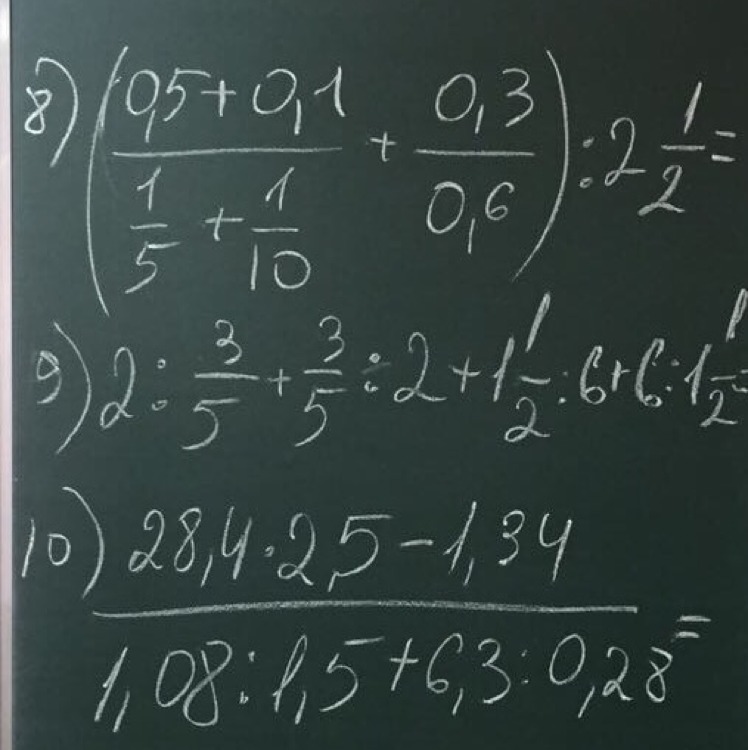 8) ( (0,5+0,1)/(1/5 + 1/10) + 0,3/0,6 ) : 2 1/2 =
9) 2 : 3/5 + 3/5 : 2 + 1 1/2 : 6 + 6 : 1 1/2 =
10) 28,4 · 2,5 - 1,34
1,08 : 1,5 + 6,3 : 0,28 =